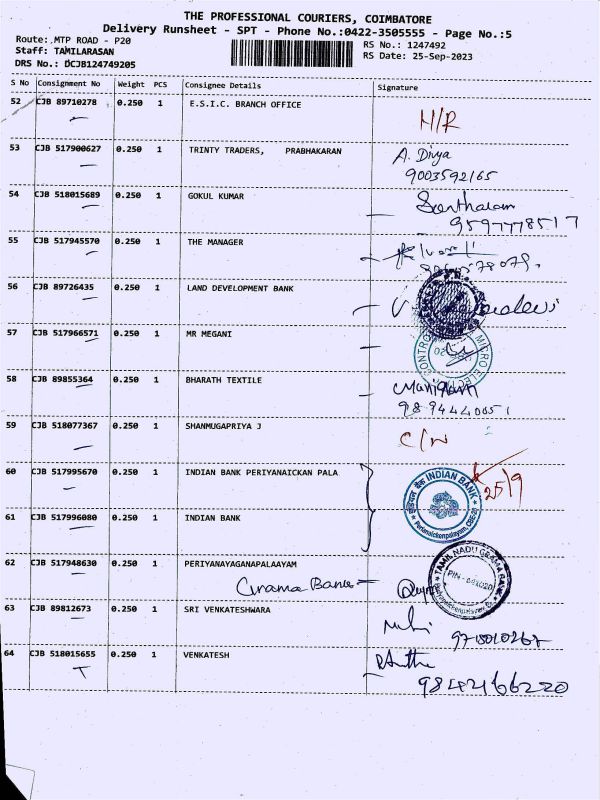 THE PROFESSIONAL COURIERS, COIMBATORE
Delivery Runsheet - SPT - Phone No.:0422-3505555 - Page No.:5
Route: MTP ROAD - P20
Staff: TAMILARASAN
DRS No.: DCJB124749205
RS No.: 1247492
RS Date: 25-Sep-2023
S No Consignment No Weight PCS Consignee Details Signature
52 CJB 89710278 0.250 1 E.S.I.C. BRANCH OFFICE
N/R
53 CJB 517900627 0.250 1 TRINTY TRADERS, PRABHAKARAN A. Divya
9003592165
54 CJB 518015689 0.250 1 GOKUL KUMAR
9597778517
55 CJB 517945570 0.250 1 THE MANAGER
56 CJB 89726435 0.250 1 LAND DEVELOPMENT BANK
57 CJB 517966571 0.250 1 MR MEGANI
58 CJB 89855364 0.250 1 BHARATH TEXTILE
9894440051
59 CJB 518077367 0.250 1 SHANMUGAPRIYA J
60 CJB 517995670 0.250 1 INDIAN BANK PERIYANAICKAN PALA
INDIAN BANK
25/9
61 CJB 517996080 0.250 1 INDIAN BANK
62 CJB 517948630 0.250 1 PERIYANAYAGANAPALAAYAM
Grama Bank
TAMIL NADU GRAMA BANK
63 CJB 89812673 0.250 1 SRI VENKATESHWARA
64 CJB 518015655 0.250 1 VENKATESH
9842166220